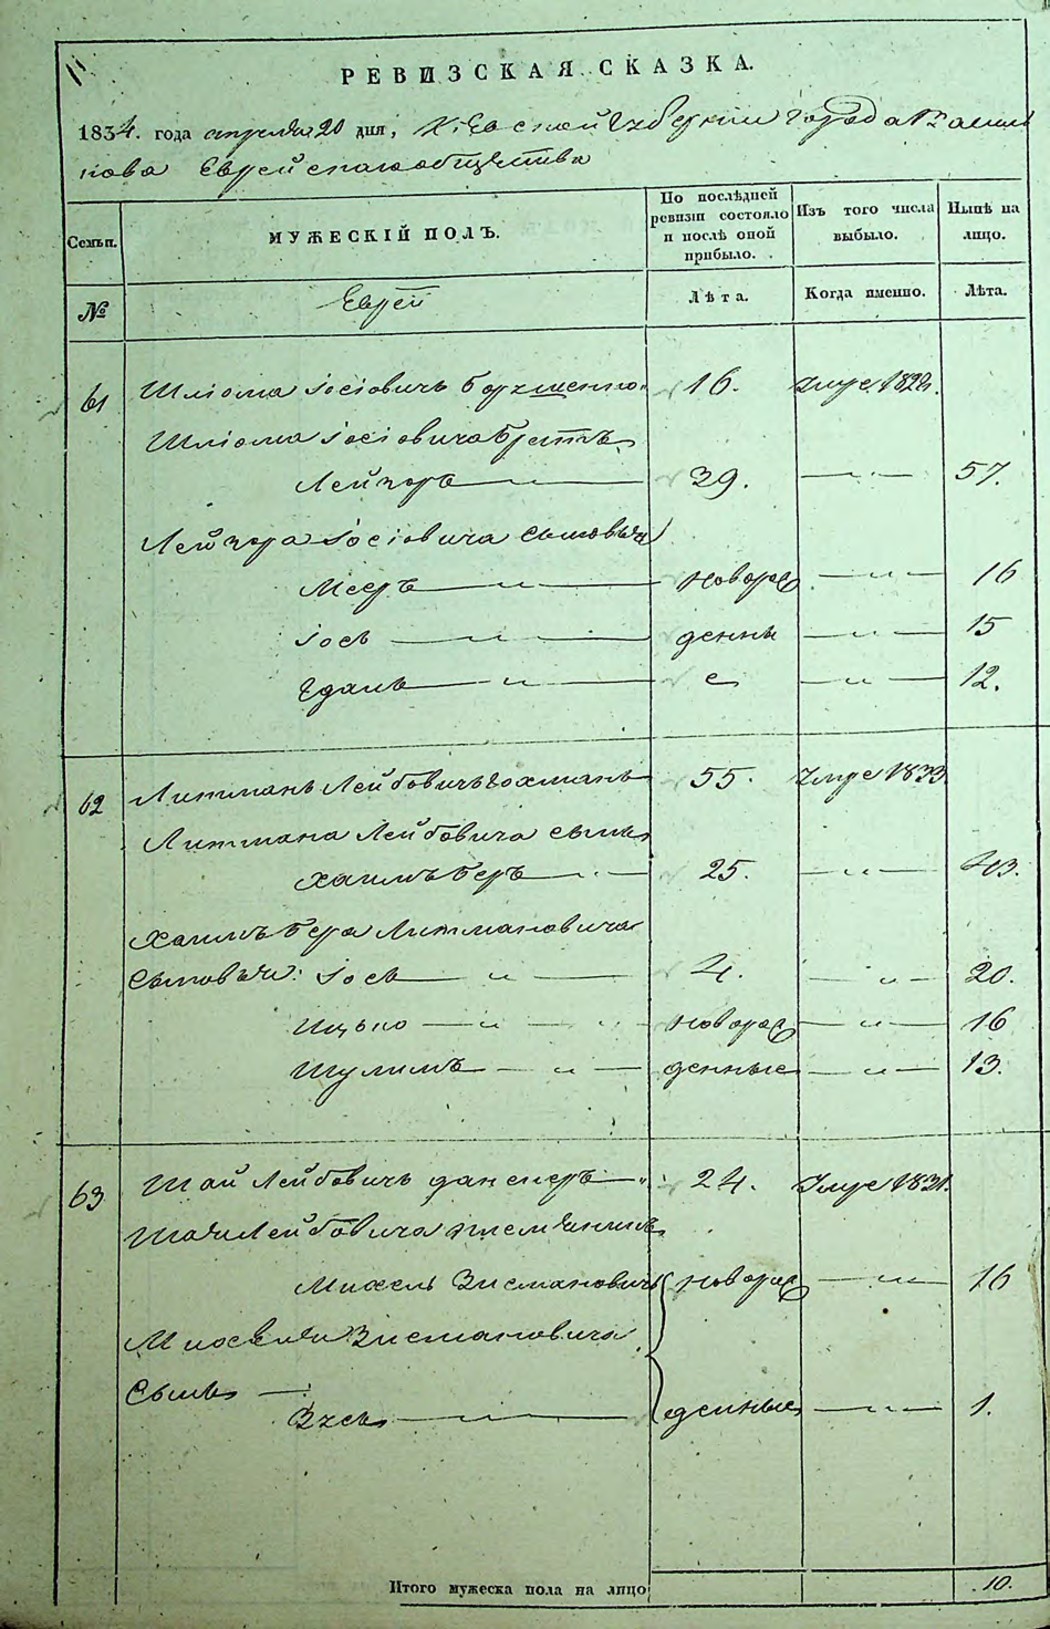 11
РЕВИЗСКАЯ СКАЗКА.
1834. года апреля 20 дня, Киевской Губернии города Василь
кова Еврейского общества
Семьи. МУЖЕСКІЙ ПОЛЪ. По послѣдней ревизіи состояло и послѣ оной прибыло. Изъ того числа выбыло. Нынѣ на лицо.
№ Еврей Лѣта. Когда именно. Лѣта.
61 Шліома Іосіовичъ 16. Умре 182
Шліома Іосіовича братъ
Лейзоръ — „ — 39. — „ — 57.
Лейзора Іосіовича сыновья
Мееръ — „ — новорож — „ — 16
Іось — „ — денны — „ — 15
— „ — е — „ — 12.
62 Литманъ Лейбовичъ Гохманъ 55. Умре 1833
Литмана Лейбовича сынъ
Хаимъ Беръ — „ — 25. — „ — 43.
Хаимъ Бера Литмановича
сыновьи: Іось — „ — 4. — „ — 20.
Ицько — „ — новорож — „ — 16
Шулимъ — „ — денные — „ — 13.
63 Шай Лейбовичъ — „ 24. Умре 1831.
Шаи Лейбовича племянникъ
Михель Зисмановичъ новорож — „ — 16
Михеля Зисмановича
сынъ —
— „ — денные — „ — 1.
Итого мужеска пола на лицо 10.